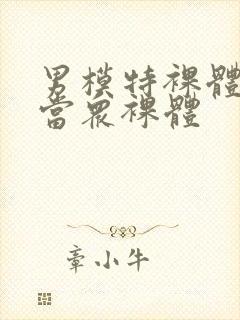 男模特裸體
當眾裸體
章小牛